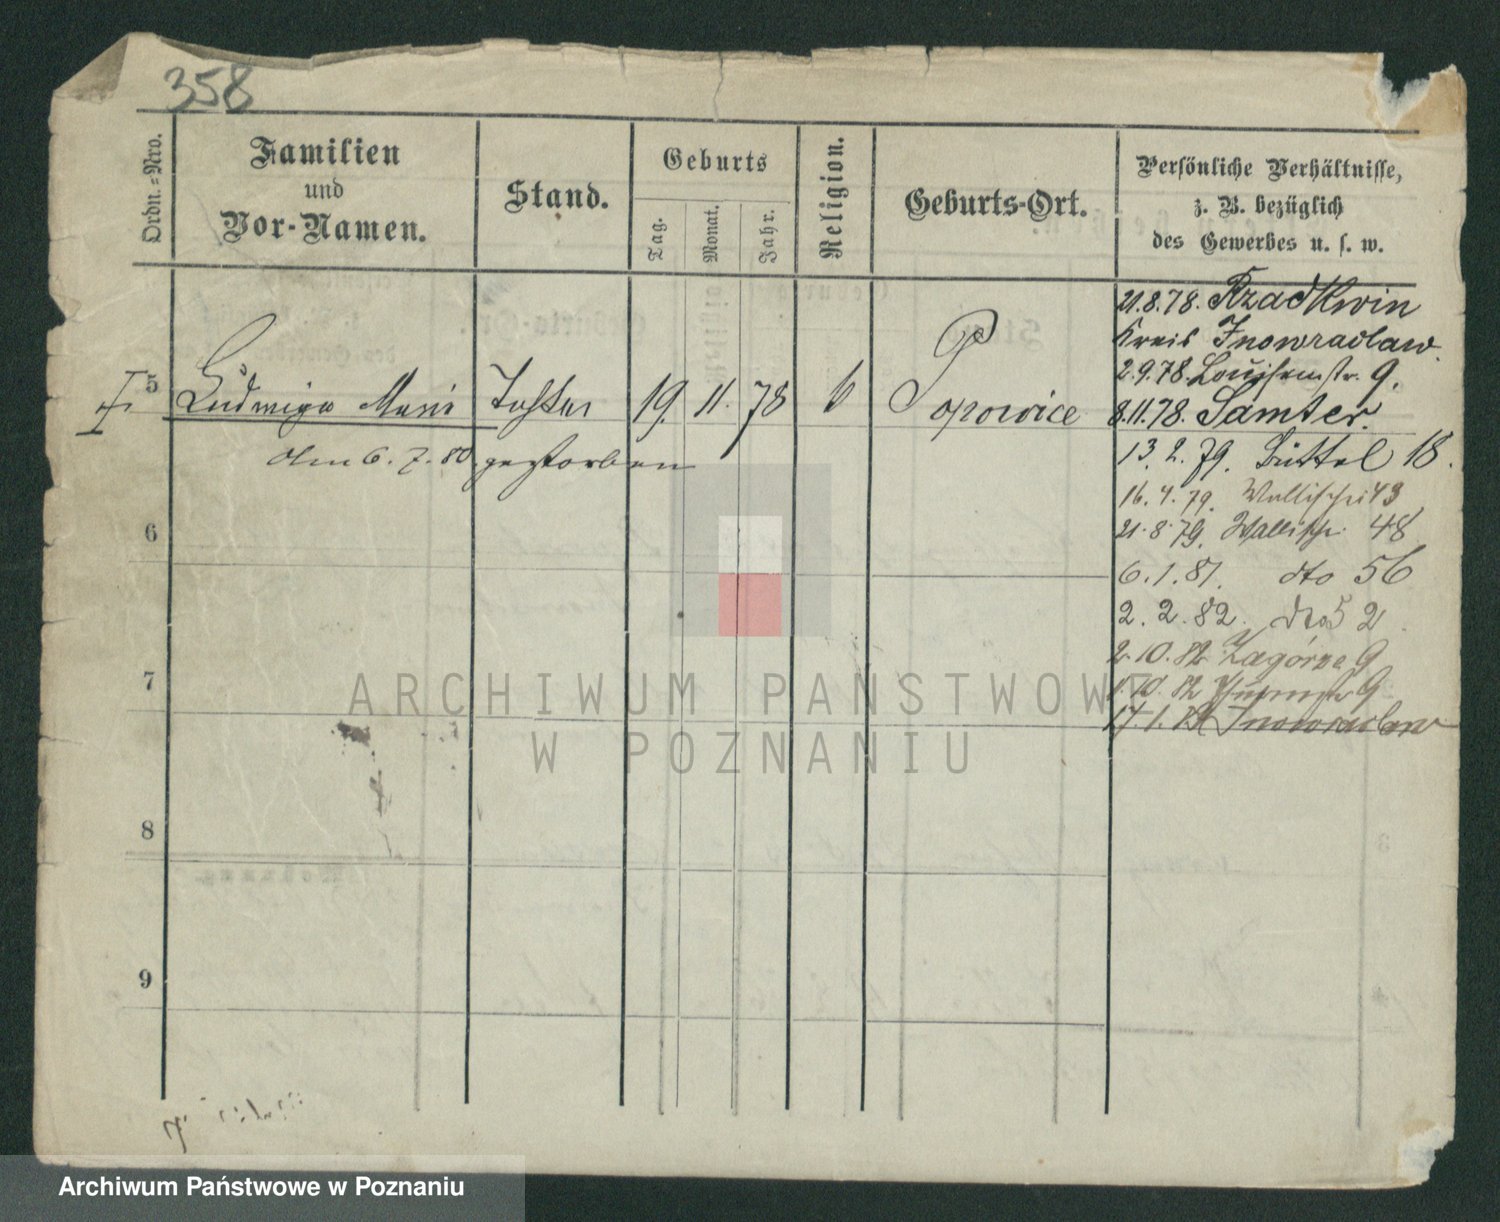 358
Ordn.=Nro.
Familien
und
Vor-Namen.
Stand.
Geburts
Tag.
Monat.
Jahr.
Religion.
Geburts-Ort.
Persönliche Verhältnisse,
z. B. bezüglich
des Gewerbes u. s. w.
21.8.78. Rzadkwin
Kreis Inowraclaw.
2.9.78. Louisenstr. 9.
5 Ludwiga Marie Tochter 19. 11. 78 k Popowice
8.11.78. Samter.
am 6. 7. 80 gestorben
13. 2. 79. Büttel 18.
16. 4. 79. Wallischei 43
6
21. 8. 79. Wallische 48
6. 1. 81. dto 56
2. 2. 82. dto 52
2. 10. 82 Zagórze 9
7
1. 10. 82 9
17. 1. Inowraclaw
8
9
ARCHIWUM PAŃSTWOWE
W POZNANIU
Archiwum Państwowe w Poznaniu